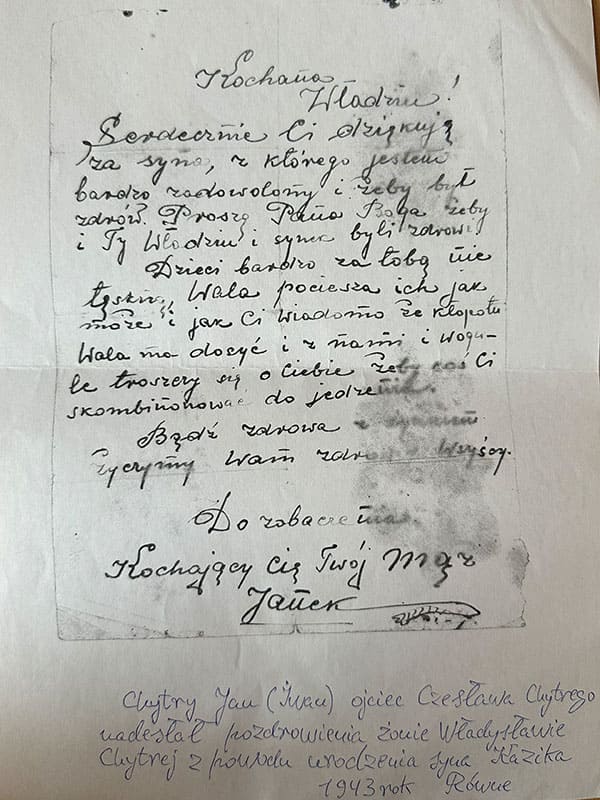 Kochana
Władziu!
Serdecznie Ci dziękuję
za syna, z którego jestem
bardzo zadowolony i żeby był
zdrów. Proszę Pana Boga żeby
i Ty Włodziu i synek byli zdrowi
Dzieci bardzo za tobą nie
tęsknią, Wala pociesza ich jak
może i jak Ci wiadomo że kłopotu
Wala ma dosyć i z nami i wogu-
le troszczy się o Ciebie żeby coś Ci
skombinonować do jedzenia.
Bądź zdrowa z synkiem
życzymy Wam wszyscy.
Do zobaczenia.
Kochający Cię Twój mąż
Janek
Chytry Jan (Iwan) ojciec Czesława Chytrego
nadesłał pozdrowienia żonie Władysławie
Chytrej z powodu urodzenia syna Kazika
1943 rok Równe